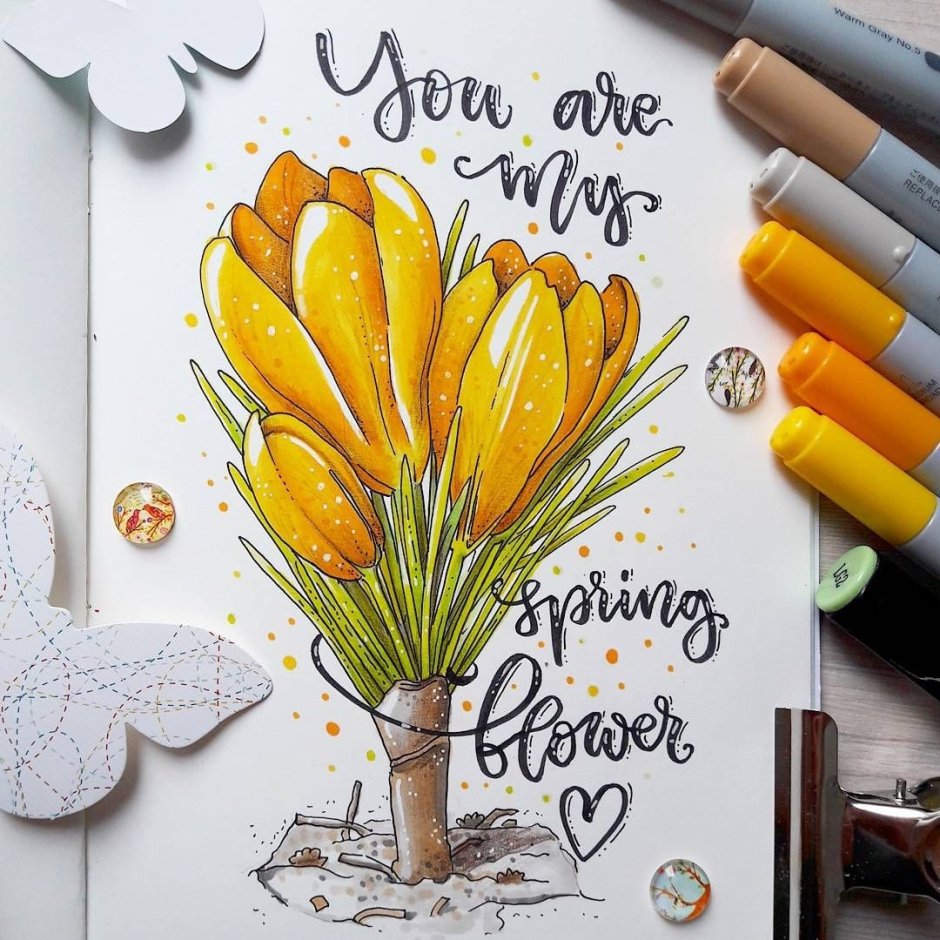 You are
my
spring
flower
Warm Gray No.5
ご使用
REPLAC
LG2